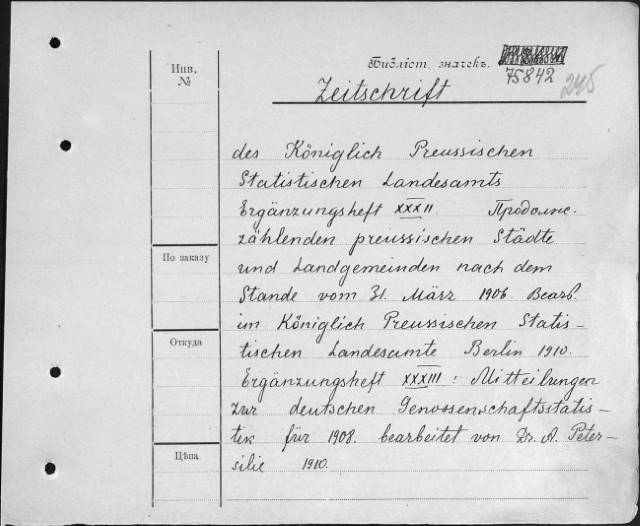 Инв.
№
Библіот. значекъ.
75842
245
Zeitschrift
des Königlich Preussischen
Statistischen Landesamts
Ergänzungsheft XXXII. Продолж.
zählenden preussischen Städte
und Landgemeinden nach dem
По заказу
Stande vom 31. März 1906. Bearb.
im Königlich Preussischen Statis-
Откуда
tischen Landesamte Berlin 1910.
Ergänzungsheft XXXIII: Mitteilungen
zur deutschen Genossenschaftsstatis-
tik für 1908. bearbeitet von Dr. A. Peter-
Цѣна
silie 1910.